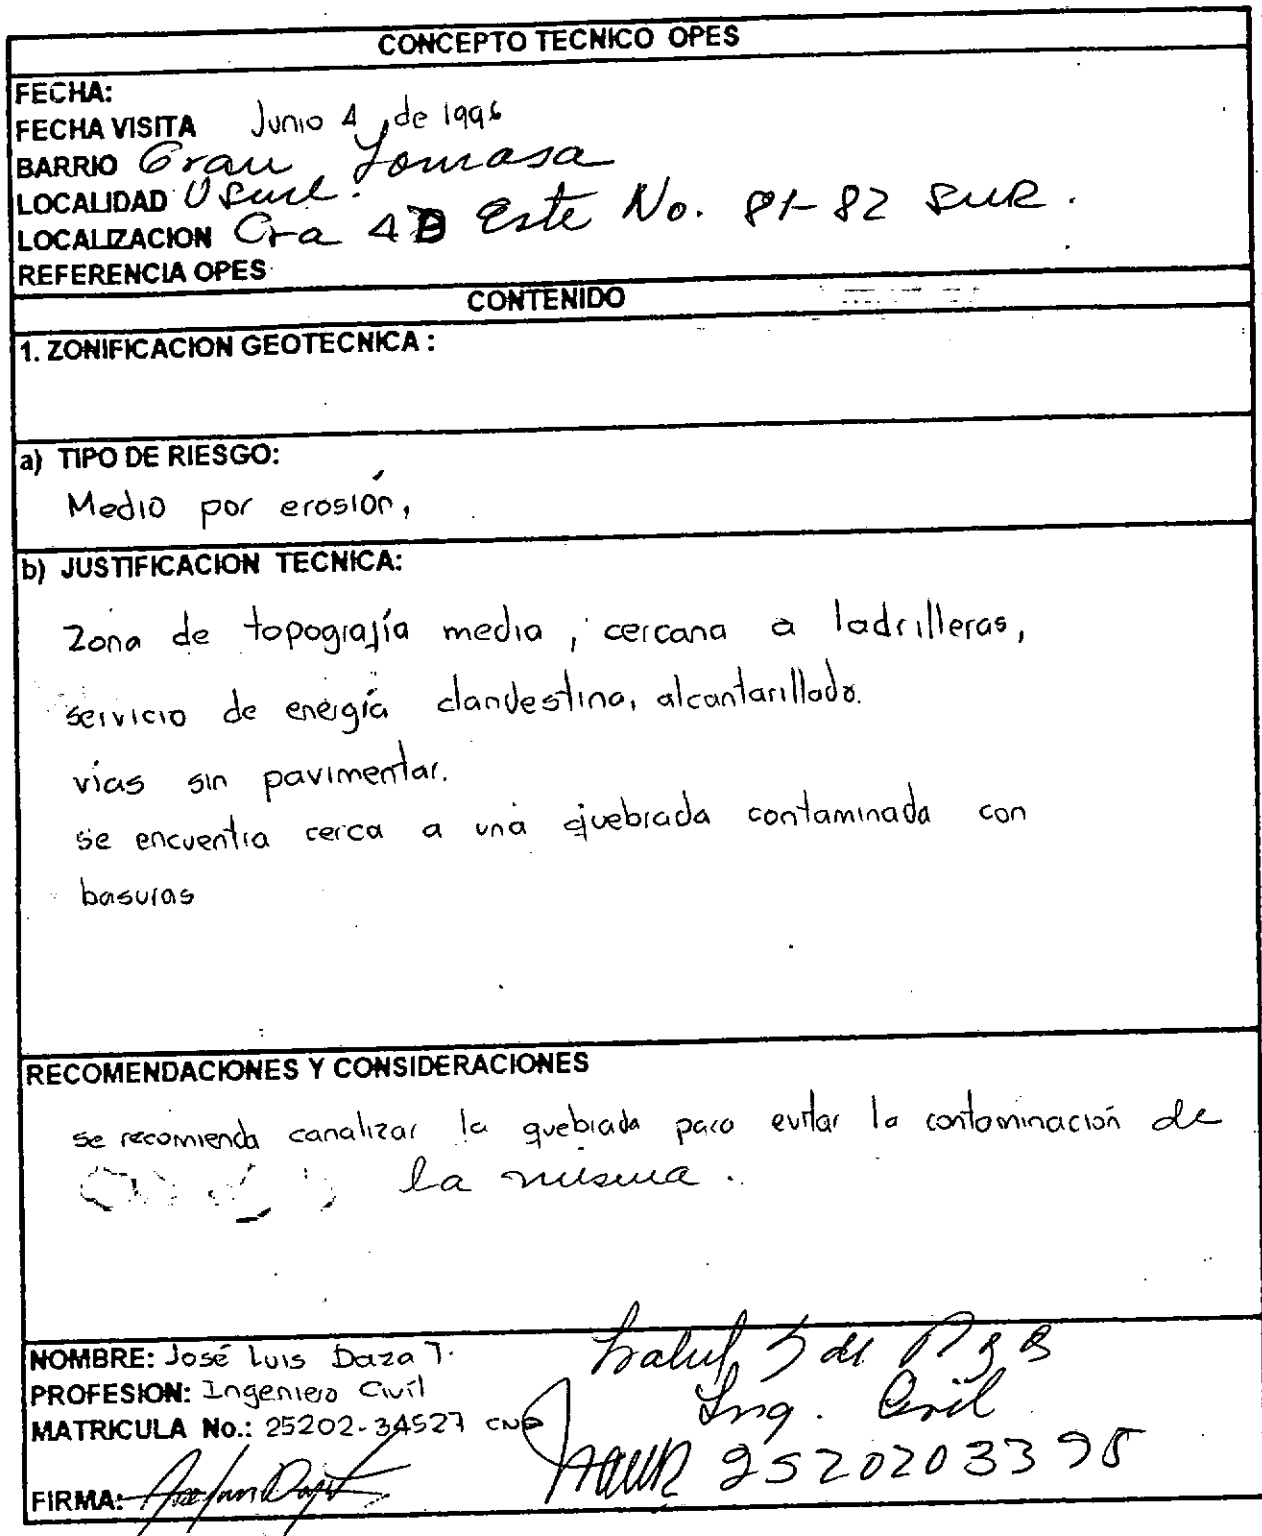 CONCEPTO TECNICO OPES
FECHA:
FECHA VISITA Junio 4, de 1996
BARRIO Gran Yomasa
LOCALIDAD Usme.
LOCALIZACION Cra 4B Este No. 81-82 SUR.
REFERENCIA OPES
CONTENIDO
1. ZONIFICACION GEOTECNICA :
a) TIPO DE RIESGO:
Medio por erosión,
b) JUSTIFICACION TECNICA:
Zona de topografía media, cercana a ladrilleras,
servicio de energía clandestina, alcantarillado.
vías sin pavimentar.
se encuentra cerca a una quebrada contaminada con
basuras
RECOMENDACIONES Y CONSIDERACIONES
se recomienda canalizar la quebrada para evitar la contaminación de
la misma.
NOMBRE: José Luis Daza T.
PROFESION: Ingeniero Civil
MATRICULA No.: 25202-34527 CND
FIRMA:
Ing. Civil
2520203395